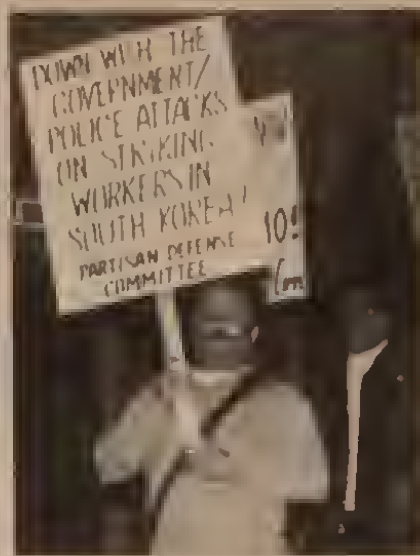 DOWN WITH THE
GOVERNMENT/
POLICE ATTACKS
ON STRIKING
WORKERS IN
SOUTH KOREA!
PARTISAN DEFENSE
COMMITTEE
10!